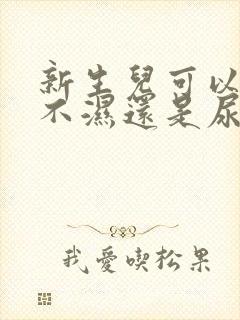 新生兒可以
不濕還是尿
我愛喫松果